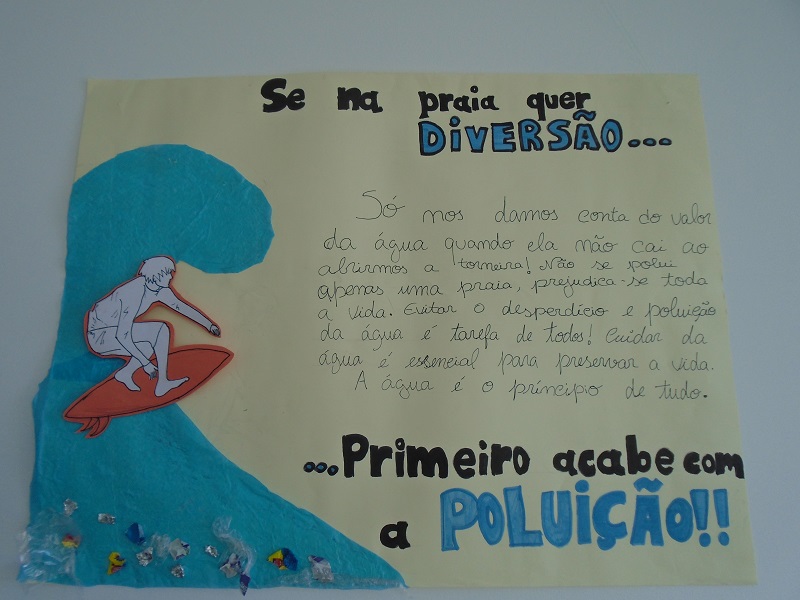 Se na praia quer
DIVERSÃO...
Só nos damos conta do valor
da água quando ela não cai ao
abrirmos a torneira! Não se polui
apenas uma praia, prejudica-se toda
a vida. Evitar o desperdício e poluição
da água é tarefa de todos! Cuidar da
água é essencial para preservar a vida.
A água é o príncipio de tudo.
...Primeiro acabe com
a POLUIÇÃO!!